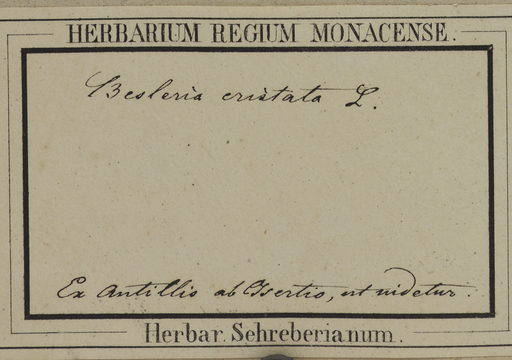 HERBARIUM REGIUM MONACENSE.
Besleria cristata L.
Ex Antillis ab Isertio, ut videtur.
Herbar. Schreberianum.